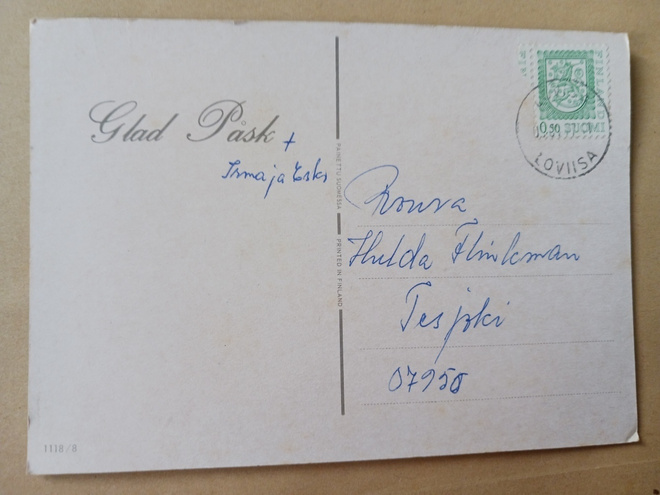 Glad Påsk
+
Irma ja Esko
1118/8
PAINETTU SUOMESSA
PRINTED IN FINLAND
0,50 SUOMI
LOVIISA
Rouva
Hulda Flinkman
Tesjoki
07950